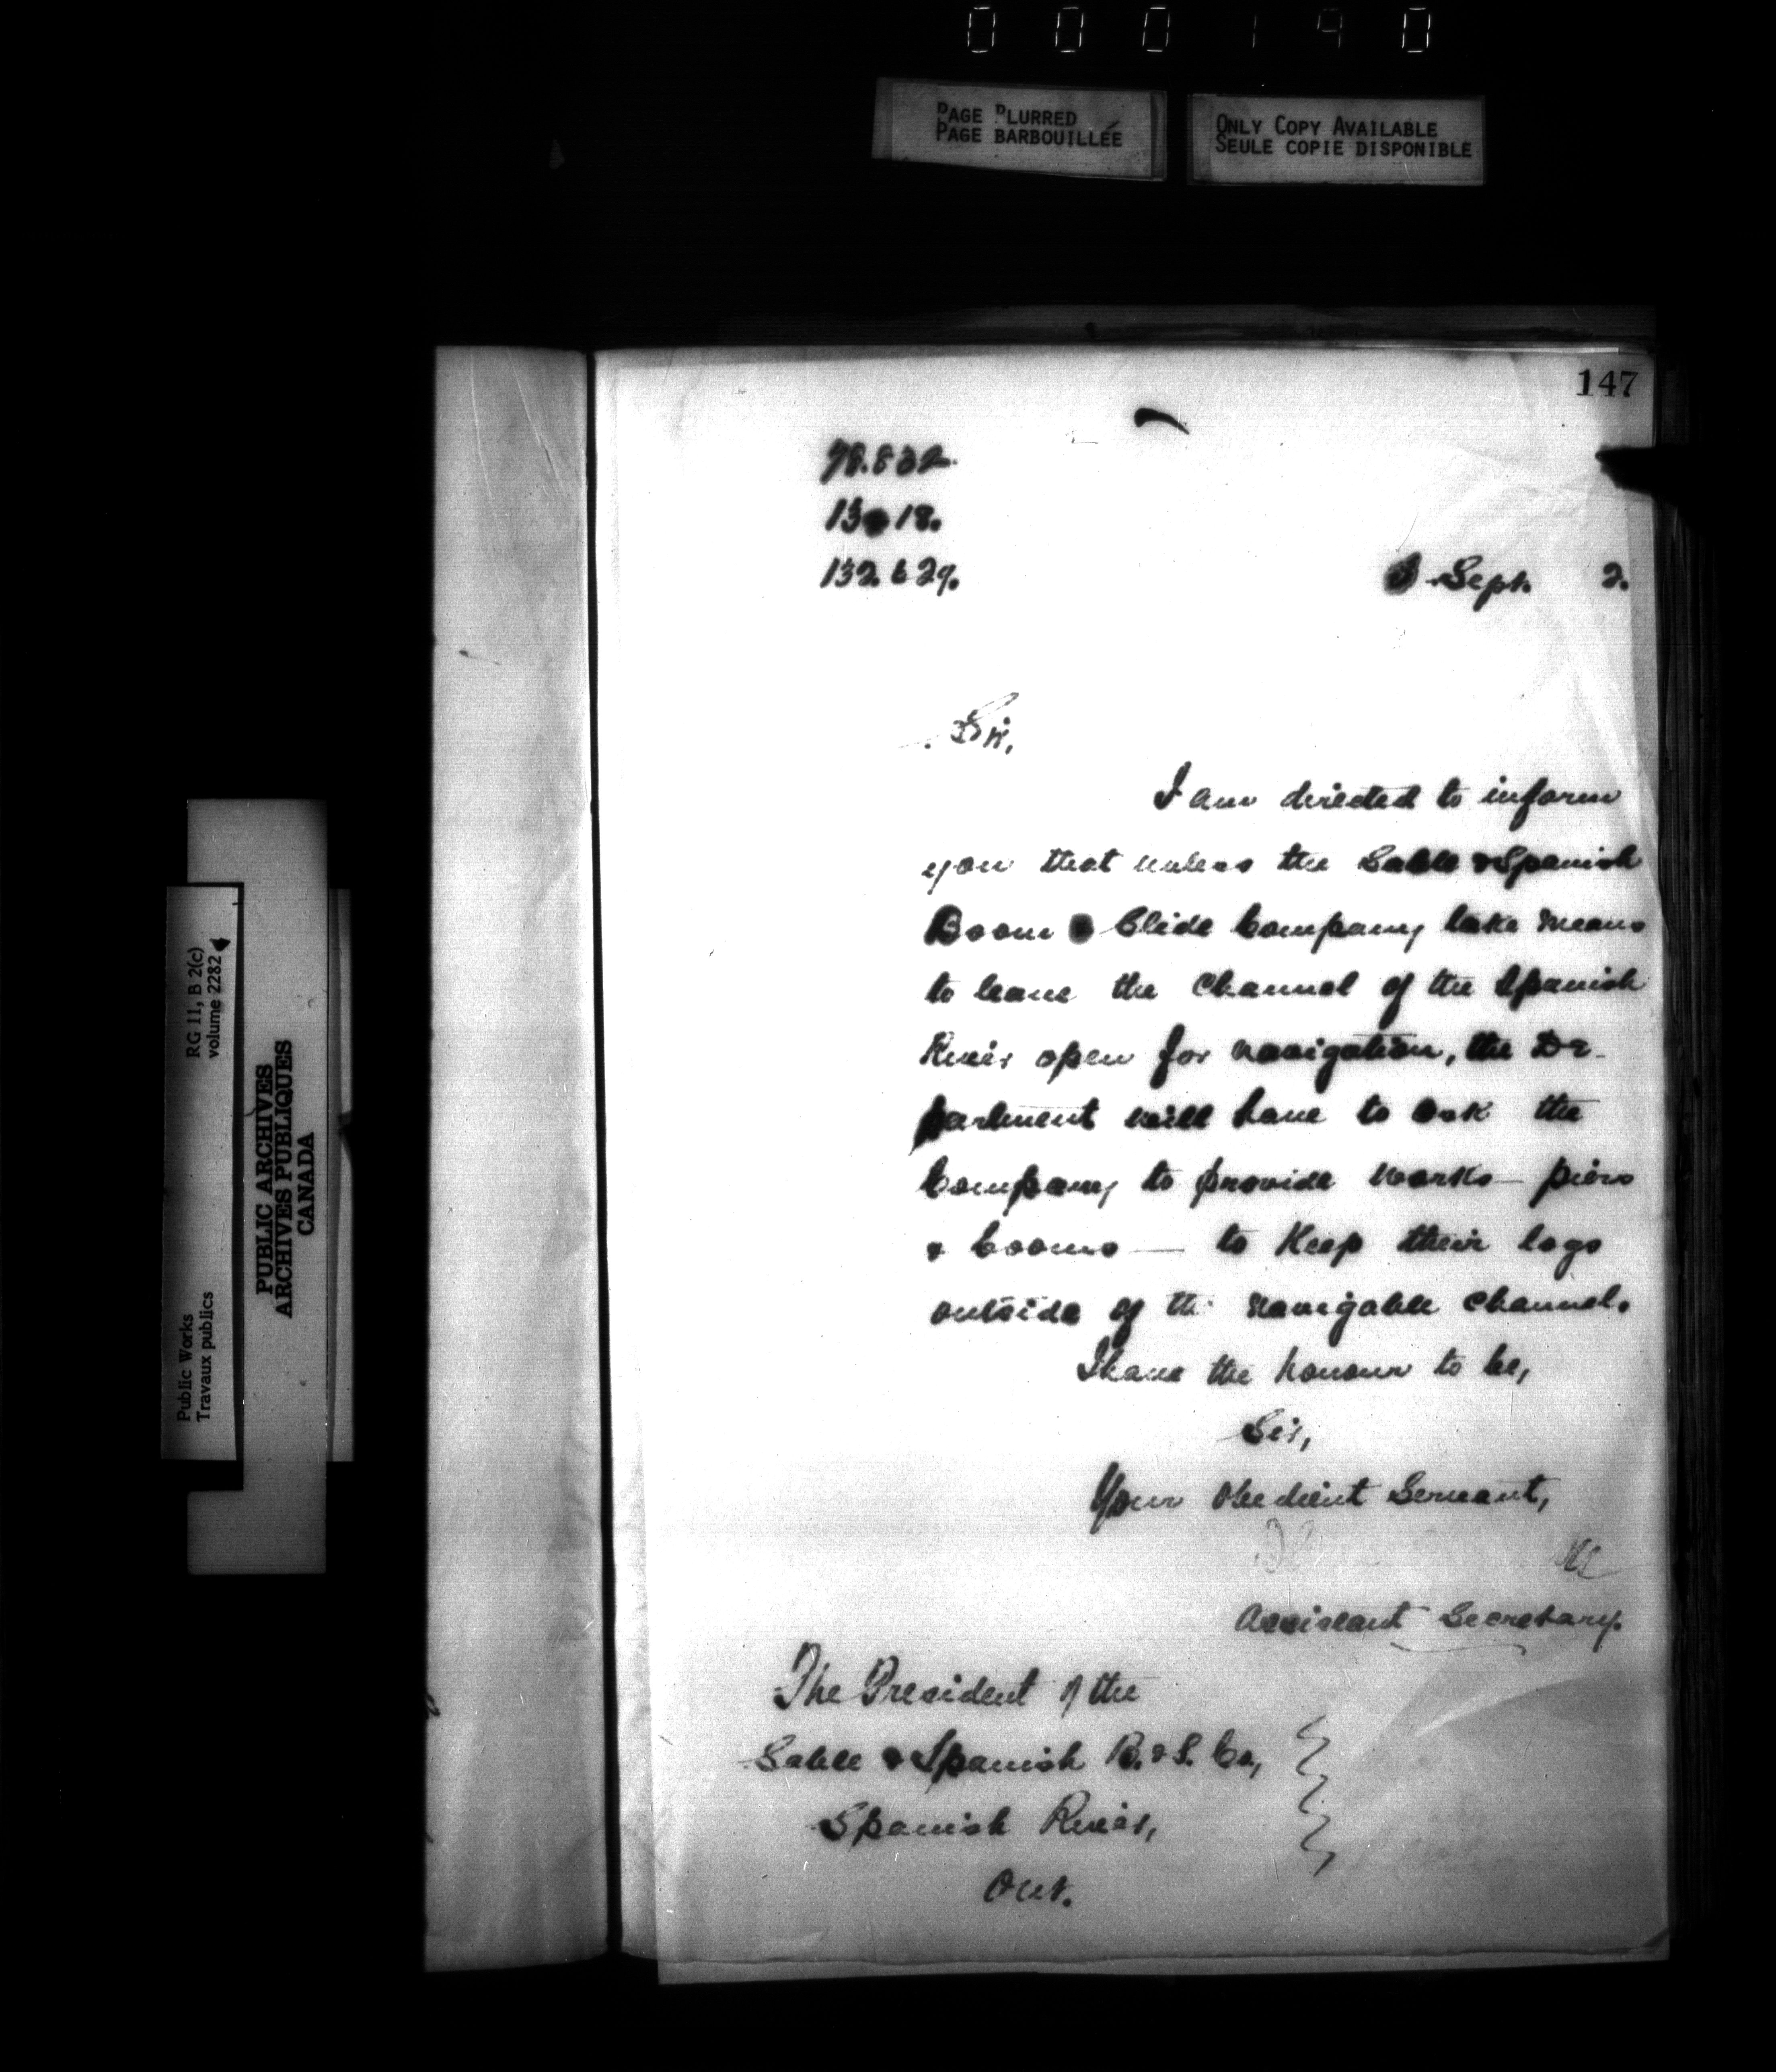 000190
PAGE BLURRED
PAGE BARBOUILLÉE
ONLY COPY AVAILABLE
SEULE COPIE DISPONIBLE
147
132.629.
Sept. 2.
Sir,
I am directed to inform
you that unless the Sable & Spanish
Boom & Slide Company take means
to leave the Channel of the Spanish
River open for navigation, the De-
partment will have to ask the
Company to provide works — piers
& booms — to Keep their logs
outside of the navigable channel.
I have the honour to be,
Sir,
Your obedient Servant,
Assistant Secretary.
The President of the
Sable & Spanish B. & S. Co,
Spanish River,
Ont.
RG 11, B 2(c)
volume 2282
Public Works
Travaux publics
PUBLIC ARCHIVES
ARCHIVES PUBLIQUES
CANADA